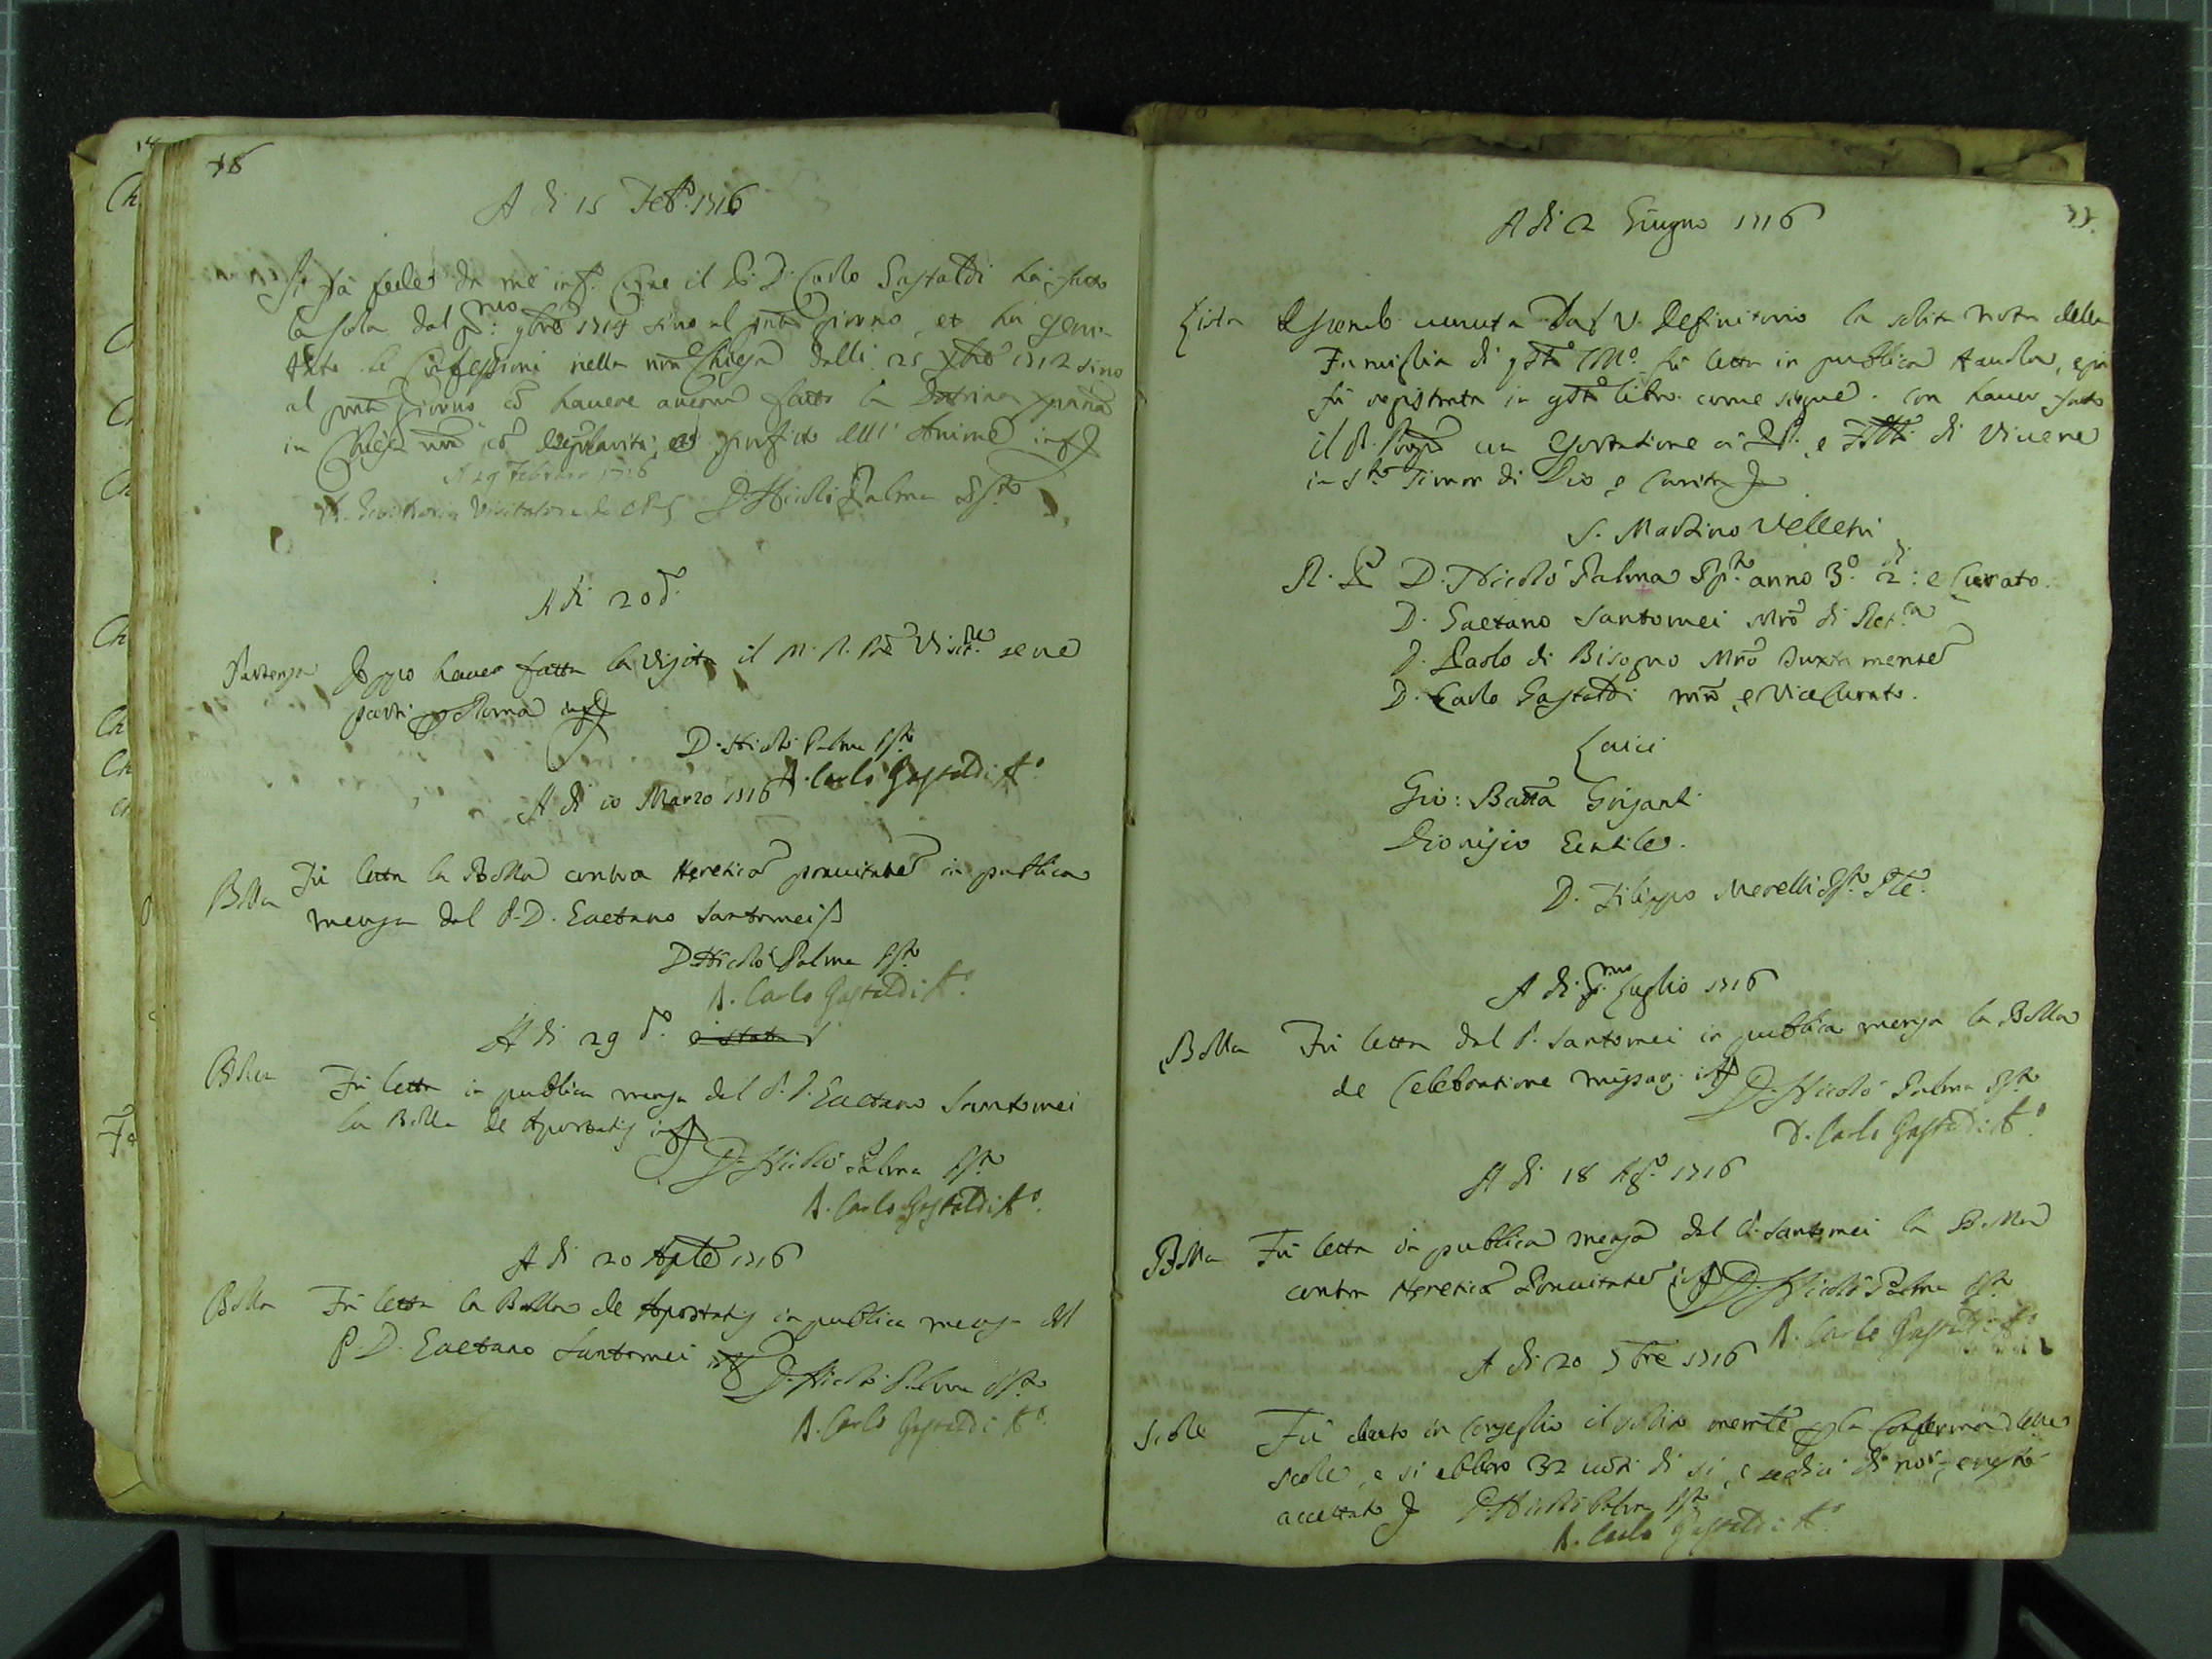 76
A di 15 Feb.º 1716
Si fà fede da me inf.º Come il P. D. Carlo Gastaldi hà fatto
la scola dal P.mo 9bre 1714 sino al pnte giorno, et hà
le Cõfessioni nella nrã Chiesa dalli 25 Xbre 1712 sino
al pnte giorno cõ havere ancora fatto la Dotrina Xpiana
in Chiesa nrã cõ et profitto dell' Anime
A 29 Febraro 1716
Visitatore D. Nicolò Palma Pp.to
A di 20 d.º
Partenza Doppo haver fatta la visita il M. R. Pre Visit.re se ne
partì p Roma
D. Nicolò Palma Pp.to
D. Carlo Gastaldi Att.º
A di 10 Marzo 1716
Bolla Fù letta la Bolla contra Heretica pravitate in publica
mensa dal P. D. Gaetano Santomei
D. Nicolò Palma Pp.to
D. Carlo Gastaldi Att.º
A di 29 d.º
Bolla Fù letta in publica mensa dal P. D. Gaetano Santomei
la Bolla de Apostatis
D. Nicolò Palma Pp.to
D. Carlo Gastaldi Att.º
A di 20 Aple 1716
Bolla Fù letta la Bolla de Apostatis in publica mensa dal
P. D. Gaetano Santomei
D. Nicolò Palma Pp.to
D. Carlo Gastaldi Att.º
77
A di 2 Giugno 1716
Lista Essendo venuta dal V. Definitorio la solita nota della
Famiglia di qsto fù letta in publica tauola, e poi
fù registrata in qsto libro come siegue. con hauer fatto
il P. un Esortatione à PP. e Flli di vivere
in S.to Timor di Dio, e Carità
S. Martino Velletri
R. P. D. Nicolò Palma Pp.to anno 3.º di 2: e Curato.
D. Gaetano Santomei Mrõ di Ret.ca
D. Paolo di Bisogno Mrõ Juxta mente
D. Carlo Gastaldi mrõ e ViceCurato.
Laici
Gio: Batta Griganti
Dionisio Gentile.
D. Filippo Merelli Pp.to Gle.
A di P.mo Luglio 1716
Bolla Fù letta dal P. Santomei in publica mensa la Bolla
de Celebratione missar. D. Nicolò Palma Pp.to
D. Carlo Gastaldi Att.º
A di 18 Ag.º 1716
Bolla Fù letta in publica mensa dal P. Santomei la Bolla
contra Heretica Pravitate D. Nicolò Palma Pp.to
D. Carlo Gastaldi Att.º
A di 20 7bre 1716
Scole Fù in Conseglio il solito p la Conferma delle
scole, e si ebbero 32 voti di sì, e sedici di nò,
accettato D. Nicolò Palma Pp.to
D. Carlo Gastaldi Att.º